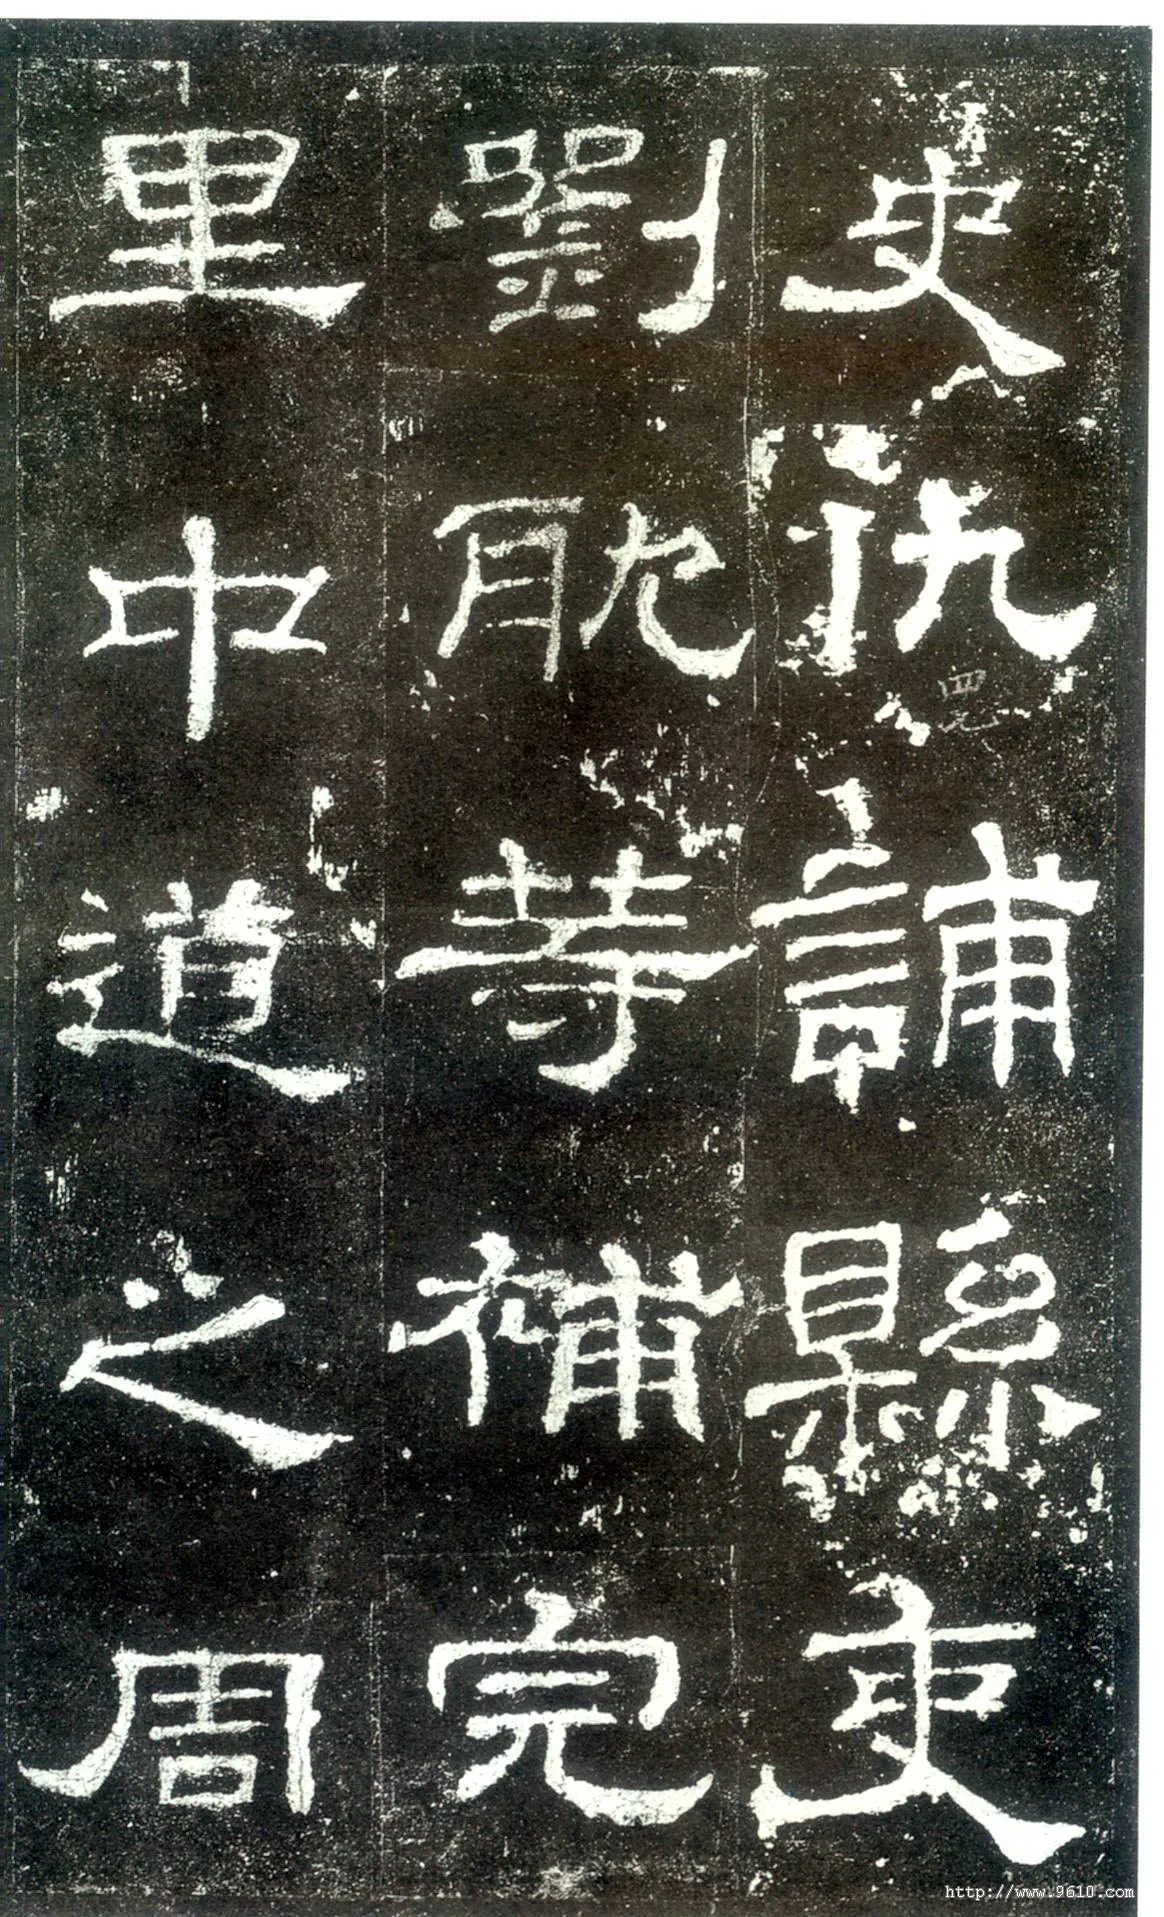 史仇誧縣吏
劉耽等補完
里中道之周
http://www.9610.com